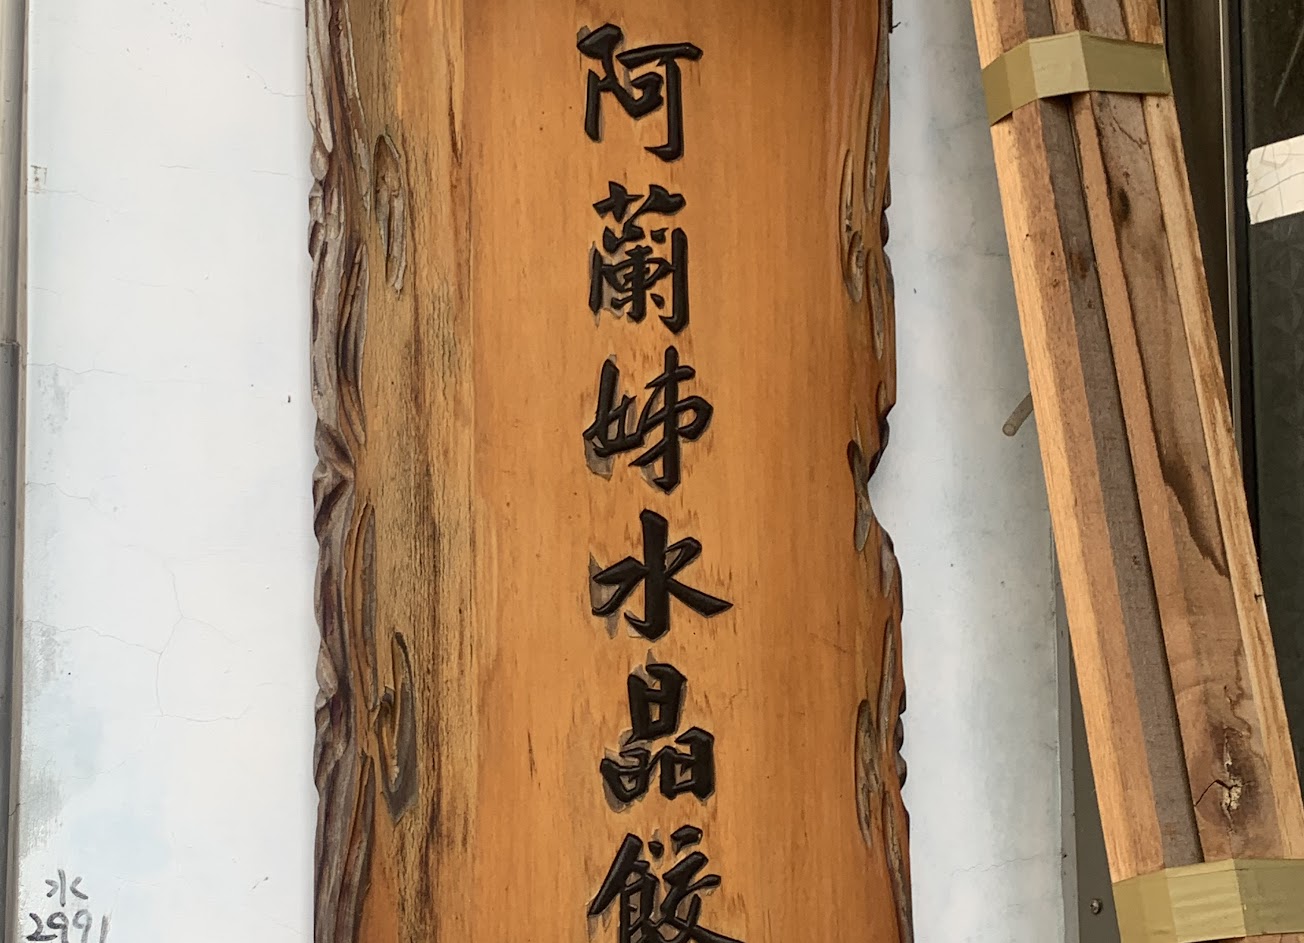 阿蘭姊水晶餃
水
2991